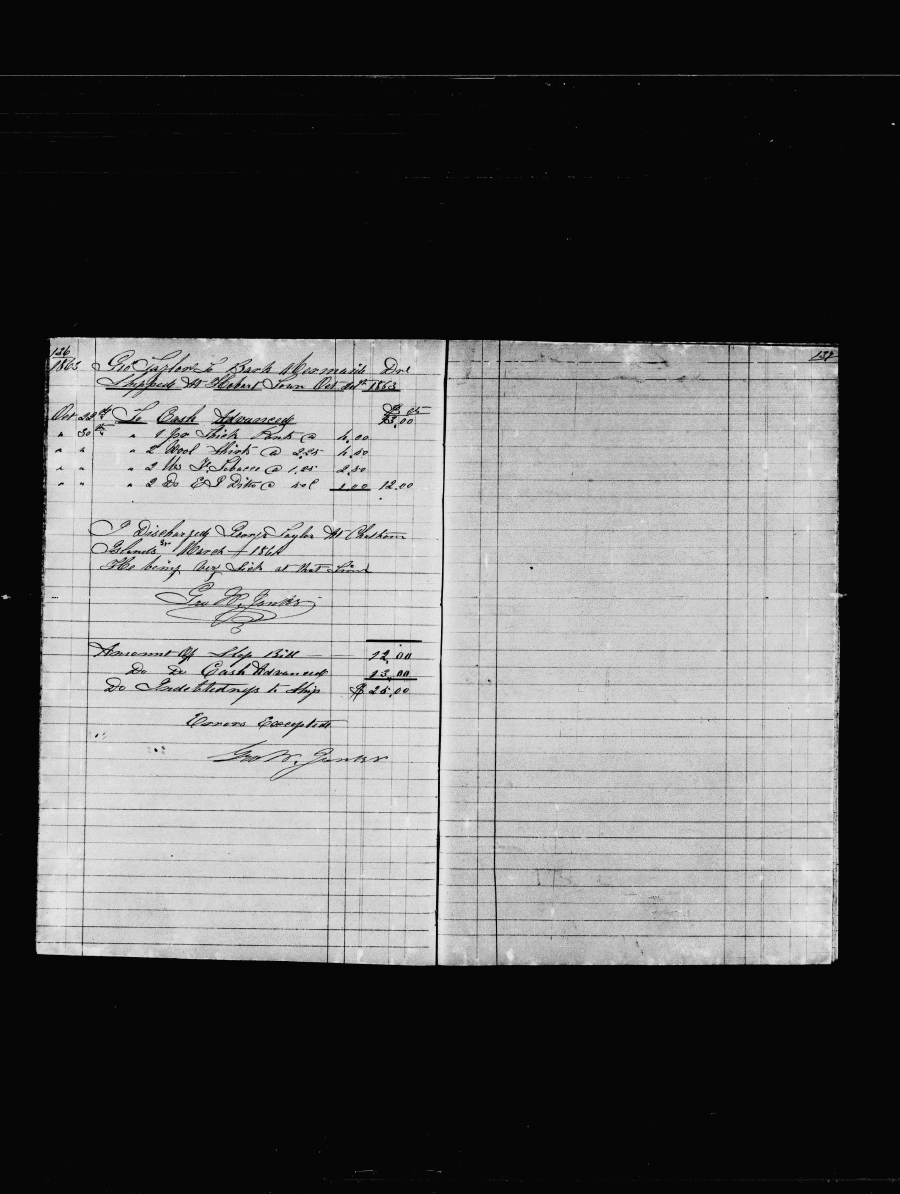 136
1863 Geo Taylor To Bark Mermaid Dr
Shipped At Hobart Town Oct 1863
$ cts
Oct To Cash Advanced 13,00
" 30th " 1 pr Thick Pants @ 4,00
" " " 2 Wool Shirts @ 2,25 4,50
" " " 2 lbs Tobacco @ 1,25 2,50
" " " 2 Do Ditto @ 50c 1,00 12,00
I Discharged George Taylor At Chatham
Islands March 1864
He being very Sick at that time
Geo W. Jenks
Amount Of Slop Bill 12,00
Do Do Cash Advanced 13,00
Do Indebtedness to Ship $ 25,00
Errors Excepted
Geo W. Jenks
137